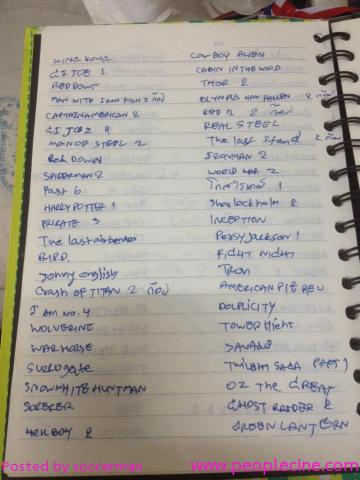 KING KONG
GI JOE 1
RED DOWN
MAN WITH IRON FISH 2 ก้อน
CAPTAIN AMERICAN 2
GI JOE 4
MAN OF STEEL 2
Red DOWN
SPIDERMAN 2
Past 6
HARRY POTTER 1
PRIRATE 3
The last airbender
R.I.P.D.
Johny english
Crash OF TITAN 2 ก้อน
I AM NO. 4
WOLVERINE
WARHORSE
SURROGATE
SNOWWHITE HUNTMAN
SORCERER
HELL BOY 2
COWBOY ALIEN
CABIN IN THE WOOD
THOR 2
OLYMPUS HAS FALLEN 2 ก้อน
RED 2 2 ก้อน
REAL STEEL
The last stand 2 ก้อน
IRONMAN 2
WORLD WAR Z
1
Sherlockholm 2
INCEPTION
Percy Jackson 1
FIGHT NIGHT
Tron
AMERICAN PIE REU
DOUPLICITY
TOWER Hieht
SAVAGE
TWILIGHT SAGA PART 1
OZ THE GREAT
GHOST RAIDER 2
GREEN LANTERN
Posted by soccerman
www.peoplecine.com